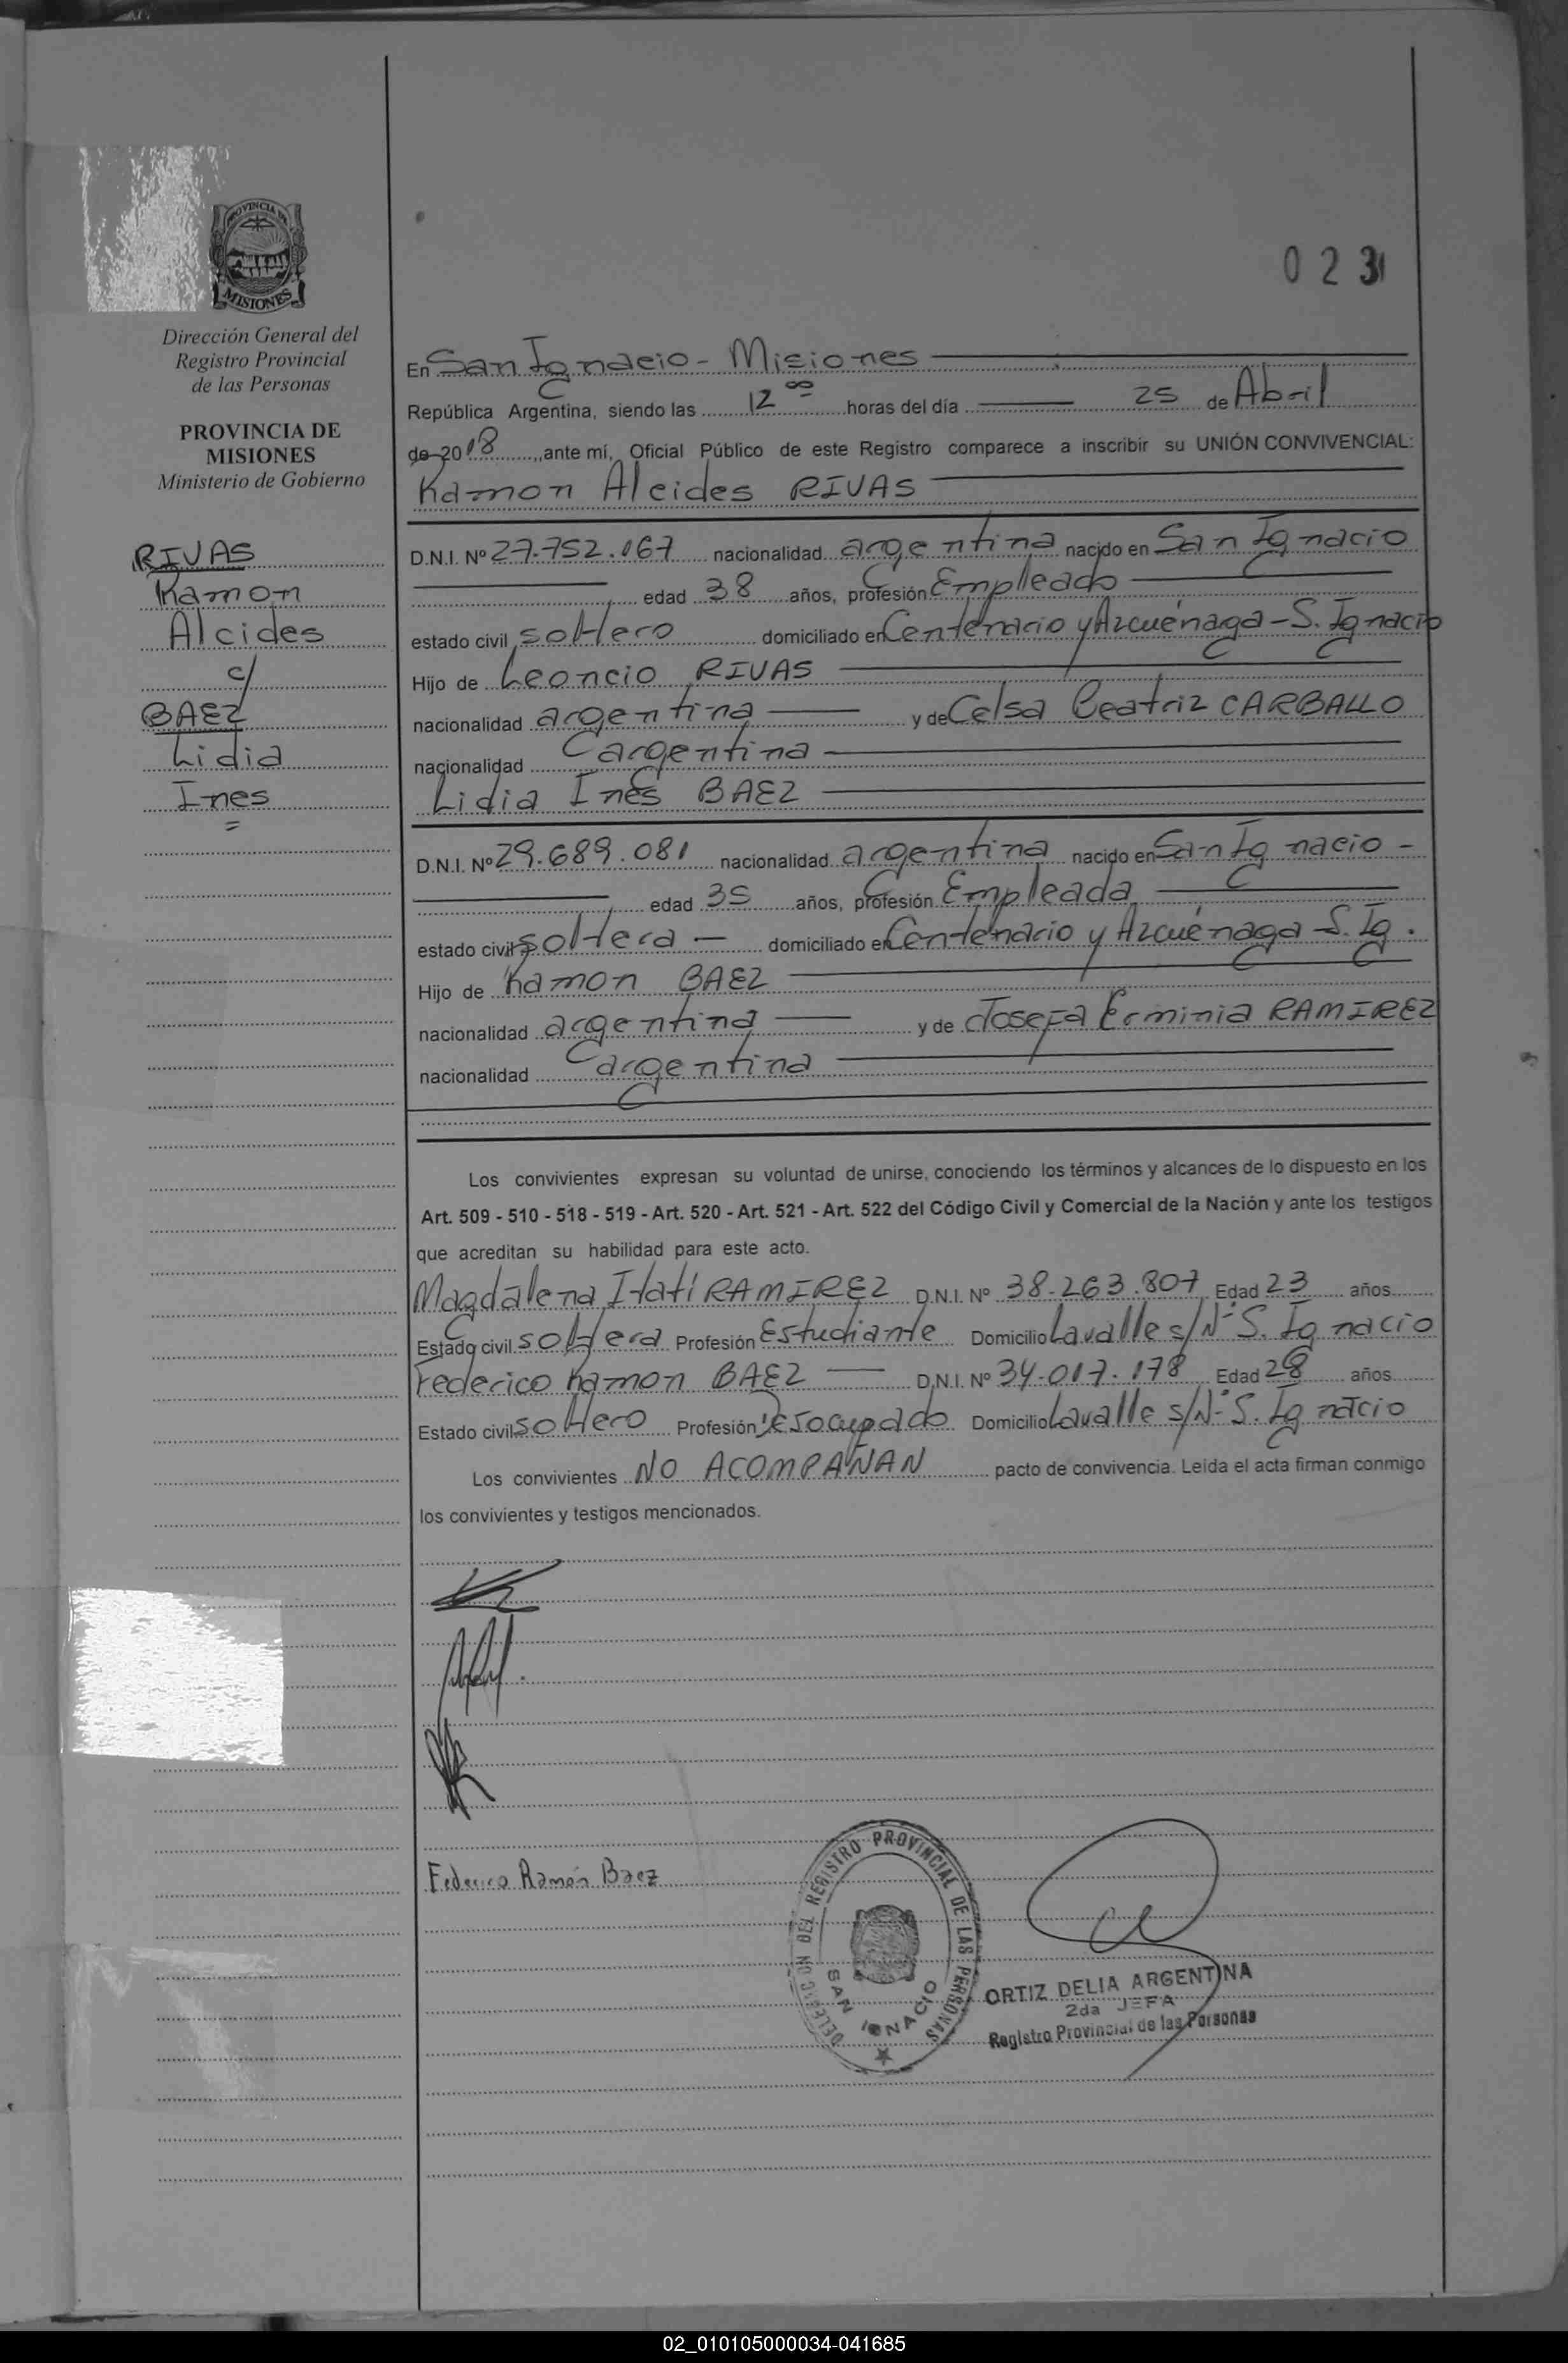 PROVINCIA DE
MISIONES
Dirección General del
Registro Provincial
de las Personas
PROVINCIA DE
MISIONES
Ministerio de Gobierno
RIVAS
Ramon
Alcides
c/
BAEZ
Lidia
Ines
=
023
En San Ignacio - Misiones
República Argentina, siendo las 12 ºº horas del día 25 de Abril
de 2018, ante mí, Oficial Público de este Registro comparece a inscribir su UNIÓN CONVIVENCIAL:
Ramon Alcides RIVAS
D.N.I. Nº 27.752.067 nacionalidad argentina nacido en San Ignacio
edad 38 años, profesión Empleado
estado civil soltero domiciliado en Centenario y Azcuénaga - S. Ignacio
Hijo de Leoncio RIVAS
nacionalidad argentina y de Celsa Beatriz CARBALLO
nacionalidad argentina
Lidia Inés BAEZ
D.N.I. Nº 29.689.081 nacionalidad argentina nacido en San Ignacio -
edad 35 años, profesión Empleada
estado civil soltera - domiciliado en Centenario y Azcuénaga - S. Ig.
Hijo de Ramon BAEZ
nacionalidad argentina y de Josefa Erminia RAMIREZ
nacionalidad argentina
Los convivientes expresan su voluntad de unirse, conociendo los términos y alcances de lo dispuesto en los
Art. 509 - 510 - 518 - 519 - Art. 520 - Art. 521 - Art. 522 del Código Civil y Comercial de la Nación y ante los testigos
que acreditan su habilidad para este acto.
Magdalena Itatí RAMIREZ D.N.I. Nº 38.263.807 Edad 23 años
Estado civil soltera Profesión Estudiante Domicilio Lavalle s/Nº S. Ignacio
Federico Ramon BAEZ D.N.I. Nº 34.017.178 Edad 28 años
Estado civil soltero Profesión Desocupado Domicilio Lavalle s/Nº S. Ignacio
Los convivientes NO ACOMPAÑAN pacto de convivencia. Leída el acta firman conmigo
los convivientes y testigos mencionados.
Federico Ramón Baez
DELEGACION DEL REGISTRO PROVINCIAL DE LAS PERSONAS
SAN IGNACIO
ORTIZ DELIA ARGENTINA
2da JEFA
Registro Provincial de las Personas
02_010105000034-041685